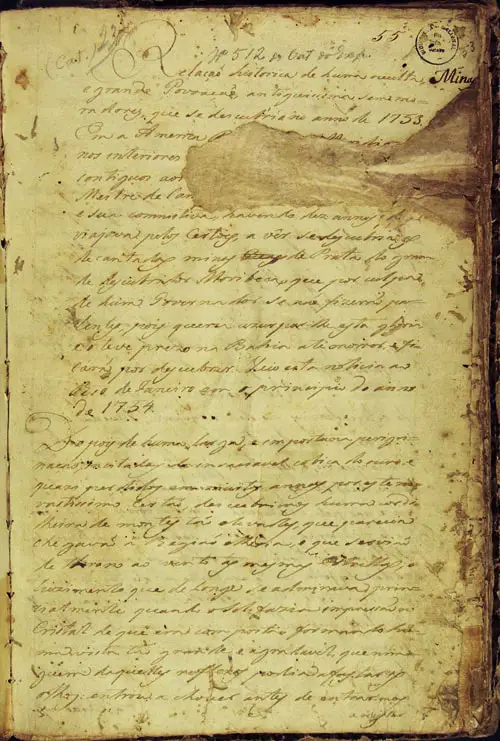 55
(Cat.
Nº 512 do Cat. da Exp.
Minas
Relação historica de huma occulta,
e grande Povoação, antiquissima sem mo-
radores, que se descubrio no anno de 1753.
Em a America
nos interiores
contiguos aos
Mestre de Can
e sua comitiva, havendo dez annos, q
viajava pelos Certões, a ver se descubria as
decantadas minas de Prata do grande
descubridor Moribeca, que por culpa
de hum Governador se não fizerão pa-
tentes, pois queria uzurparlhe esta gloria
e o teve prezo na Bahia até morrer, e fi-
carão por descubrir. Veio esta noticia ao
Rio de Janeiro em o principio do anno
de 1754.
Depois de huma larga, e importuna perigri-
nação, incitados da insaciavel cobiça do ouro, e
quazi perdidos em muitos annos por este
vastissimo Certão, descubrimos huma cordi-
lheira de montes tão elevados, que parecia
chegavão à Região etherea, e que servião
de throno ao vento, às mesmas Estrellas, o
luzimento que de longe se admirava, prin-
cipalmente quando o Sol fazia impressão ao
Cristal de que era composta formando hu-
ma vista tão grande, e agradavel, que nin-
guem daquelles reflexos podia afastar os
olhos: entrou a chover antes de entrarmos